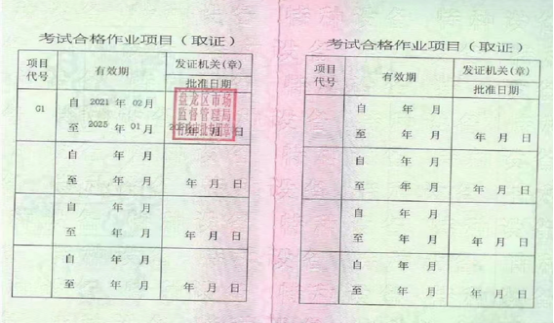 考试合格作业项目（取证）
项目代号
有效期
发证机关(章)
批准日期
G1
自 2021 年 02月
至 2025 年 01月
年 月 日
自 年 月
至 年 月
年 月 日
自 年 月
至 年 月
年 月 日
自 年 月
至 年 月
年 月 日
考试合格作业项目（取证）
项目代号
有效期
发证机关(章)
批准日期
自 年 月
至 年 月
年 月 日
自 年 月
至 年 月
年 月 日
自 年 月
至 年 月
年 月 日
自 年 月
至 年 月
年 月 日